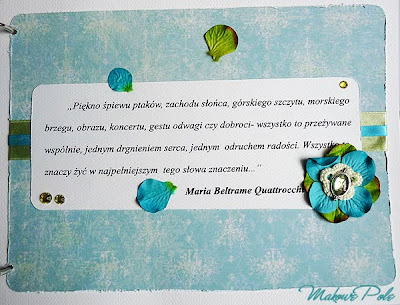 „Piękno śpiewu ptaków, zachodu słońca, górskiego szczytu, morskiego
brzegu, obrazu, koncertu, gestu odwagi czy dobroci- wszystko to przeżywane
wspólnie, jednym drgnieniem serca, jednym odruchem radości. Wszystko to
znaczy żyć w najpełniejszym tego słowa znaczeniu..."
Maria Beltrame Quattrocchi
Makowe Pole